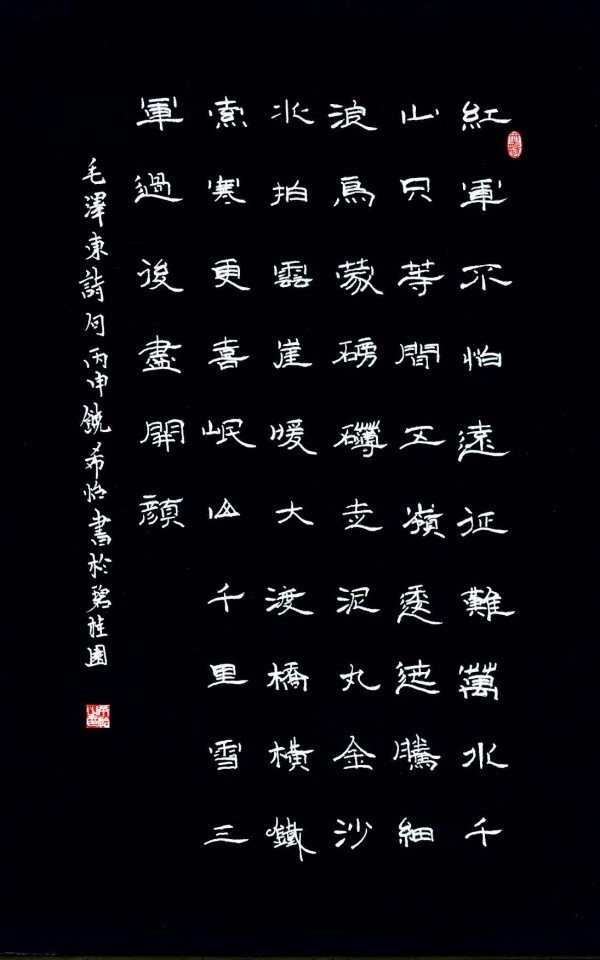 紅軍不怕遠征難萬水千
山只等閒五嶺逶迤騰細
浪烏蒙磅礴走泥丸金沙
水拍雲崖暖大渡橋橫鐵
索寒更喜岷山千里雪三
軍過後盡開顏
毛澤東詩句丙申銳希怡書於碧桂園